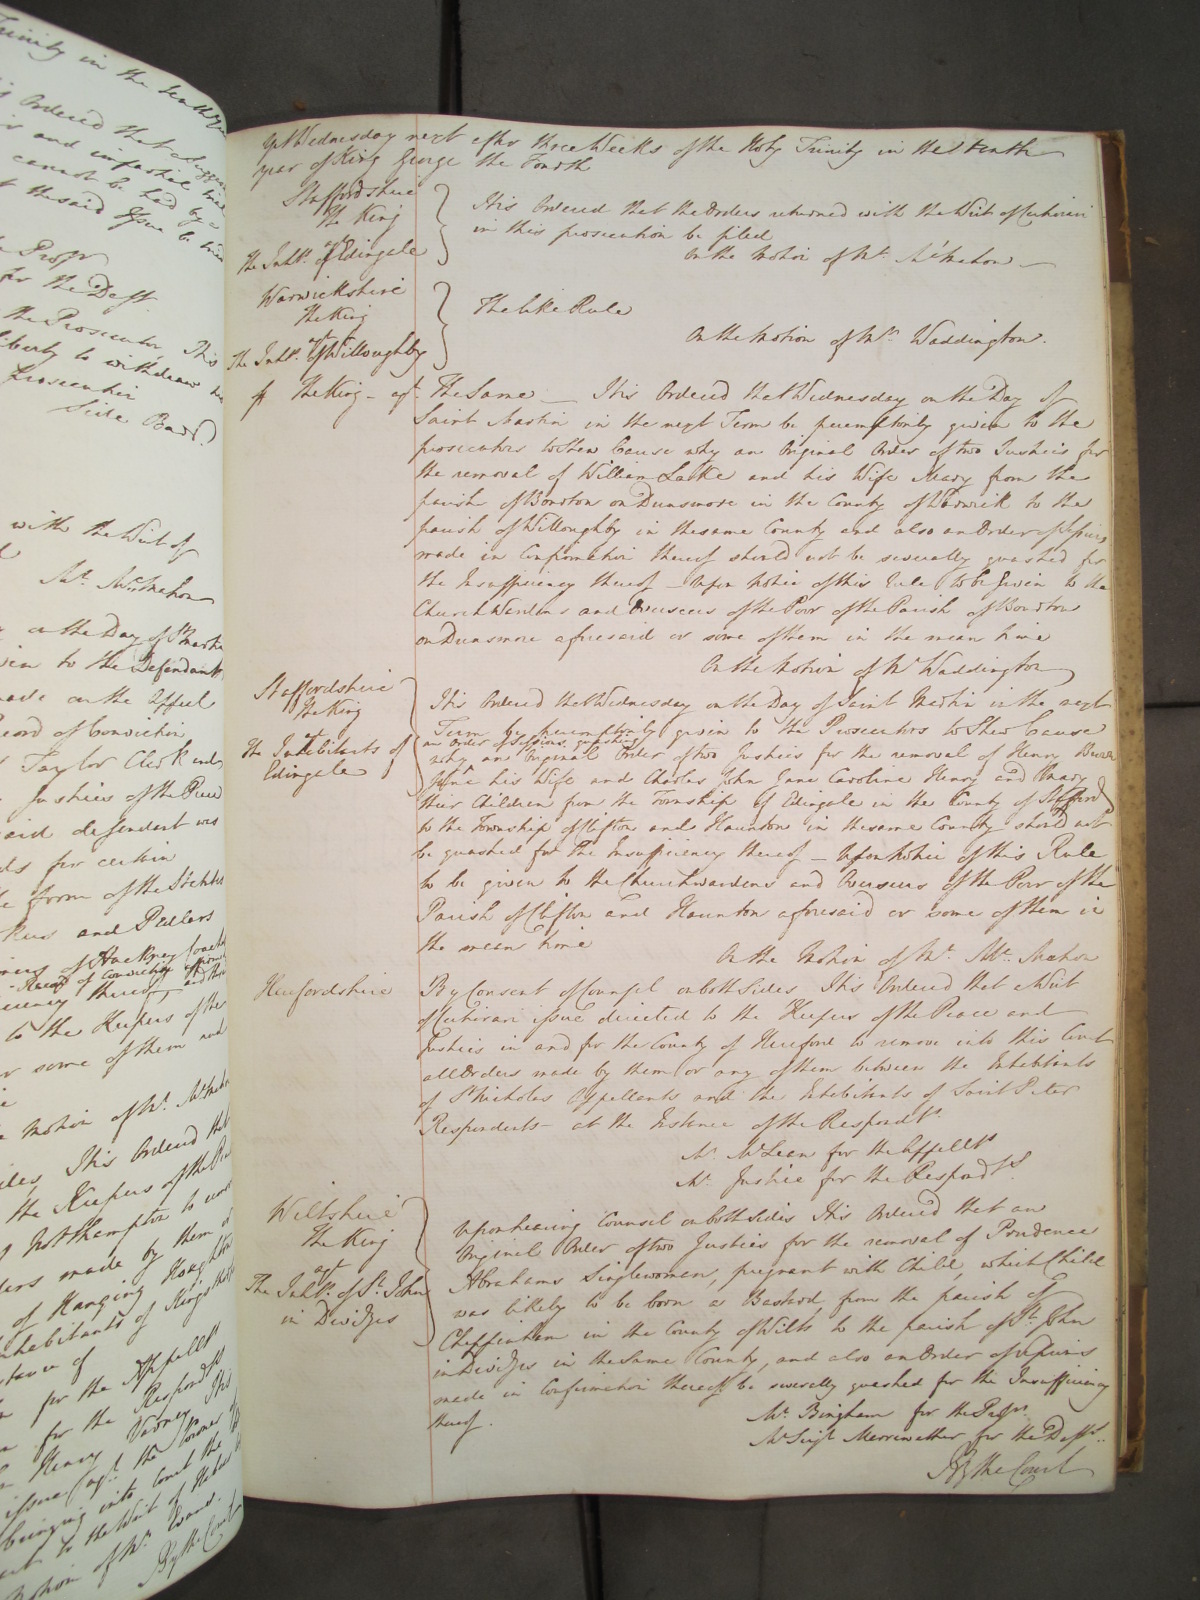 Trinity in the tenth year
is Ordered that
and impartial trial
cannot be had by a
the said Issue be tried
Prosr
for the Deft
the Prosecutor, This
liberty to withdraw his
prosecution
Side Bar
with the Writ of
Mr. McMahon
on the Day of St Martin
given to the Defendant
made on the Appeal
Record of Conviction
Taylor Clerk and
Justices of the Peace
said defendant was
for certain
form of the Statute
and Pedlars
of Hackney Coaches
Record of Conviction
thereof and this
to the Keepers of the
or some of them
Motion of Mr. McMahon
sides, It is Ordered that
the Keepers of the Peace
of Northampton to
Orders made by them or
of Hanging Houghton
Inhabitants of Kings
Instance of
for the Appellts
for the Respondts
Henry Varney
issue agt. the Coroner
bringing into Court the
to the Writ of Habeas
Motion of Mr.
By the Court
Yet Wednesday next after three Weeks of the Holy Trinity in the tenth
year of King George the Fourth
Staffordshire
The King
agt
The Inhts. of Edingale
It is Ordered that the Orders returned with the Writ of Certiorari
in this prosecution be filed
On the Motion of Mr. McMahon
Warwickshire
The King
agt
The Inhts. of Willoughby
The like Rule
On the Motion of Mr. Waddington.
The King - agt. The Same - It is Ordered that Wednesday on the Day of
Saint Martin in the next Term be peremptorily given to the
prosecutors to shew Cause why an Original Order of two Justices for
the removal of William Lakke and his Wife Mary from the
parish of Bourton on Dunsmore in the County of Warwick to the
parish of Willoughby in the same County and also an Order of Sessions
made in Confirmation thereof should not be severally quashed for
the Insufficiency thereof - Upon Notice of this Rule to be given to the
Church Wardens and Overseers of the Poor of the Parish of Bourton
on Dunsmore aforesaid or some of them in the mean time
On the Motion of Mr Waddington
Staffordshire
The King
agt
The Inhabitants of
Edingale
It is Ordered that Wednesday on the Day of Saint Martin in the next
Term be peremptorily given to the Prosecutors to Shew Cause
an Order of Sessions quashing
why an Original Order of two Justices for the removal of Henry
Jane his Wife and Charles John Jane Caroline Henry and Mary
their Children from the Township of Edingale in the County of Stafford
to the Township of Clifton and Haunton in the same County should not
be quashed for the Insufficiency thereof - Upon Notice of this Rule
to be given to the Churchwardens and Overseers of the Poor of the
Parish of Clifton and Haunton aforesaid or some of them in
the mean time
On the Motion of Mr. McMahon
Herefordshire
By Consent of Counsel on both Sides It is Ordered that a Writ
of Certiorari issue directed to the Keepers of the Peace and
Justices in and for the County of Hereford to remove into this Court
all Orders made by them or any of them between the Inhabitants
of St Nicholas Appellants and the Inhabitants of Saint Peter
Respondents - at the Instance of the Respondts.
Mr. McLean for the Appellts
Mr. Justice for the Respondts.
Wiltshire
The King
agt
The Inhts. of St. John
in Devizes
Upon hearing Counsel on both sides It is Ordered that an
Original Order of two Justices for the removal of Prudence
Abrahams Singlewoman, pregnant with Child, which Child
was likely to be born a Bastard, from the parish of
Chippenham in the County of Wilts to the parish of St. John
in Devizes in the Same County, and also an Order of Sessions
made in Confirmation thereof be severally quashed for the Insufficiency
thereof.
Mr. Bingham for the Prosr.
Mr Serjt Merewether for the Defts.
By the Court